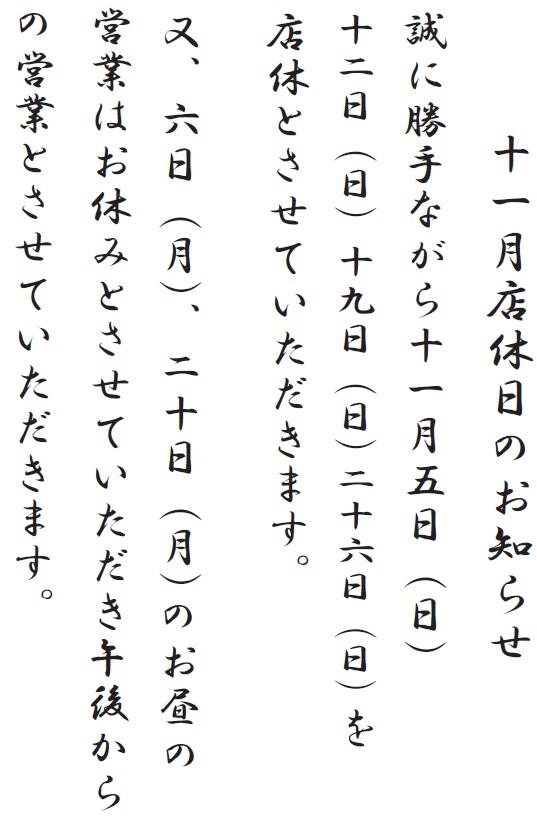 十一月店休日のお知らせ
誠に勝手ながら十一月五日（日）
十二日（日）十九日（日）二十六日（日）を
店休とさせていただきます。
又、六日（月）、二十日（月）のお昼の
営業はお休みとさせていただき午後から
の営業とさせていただきます。